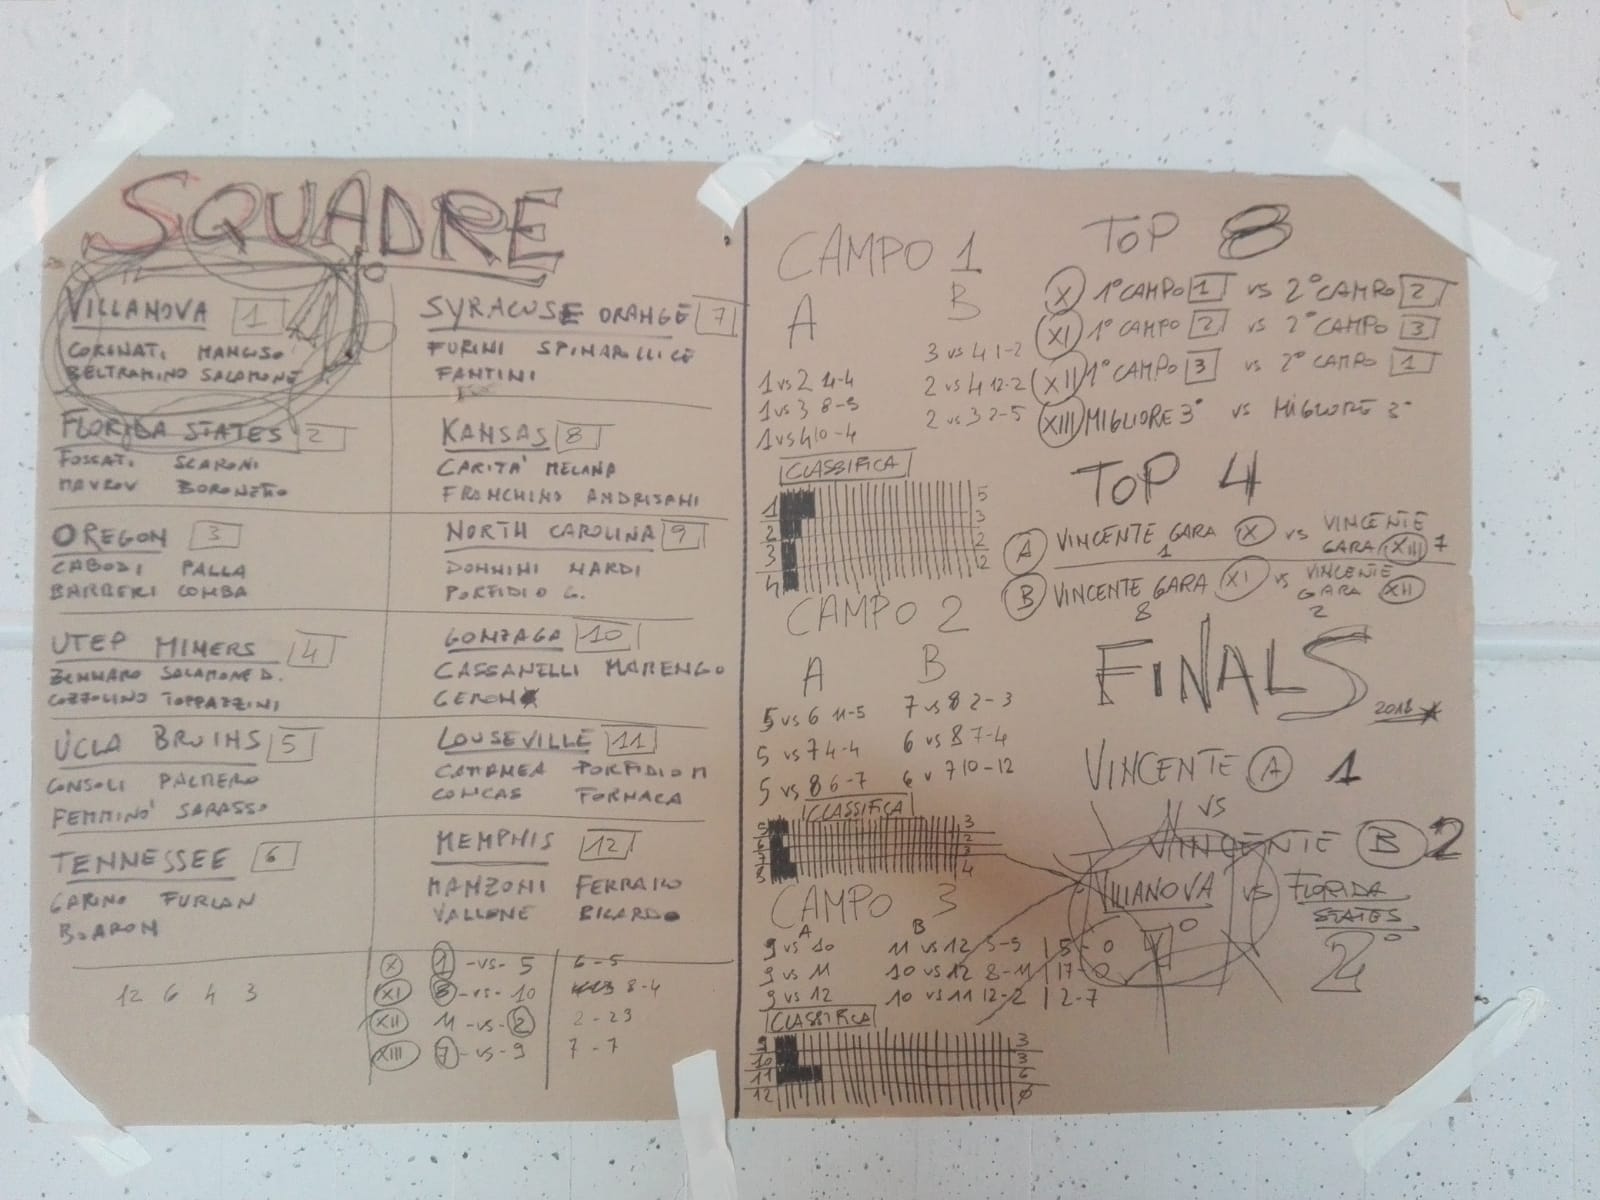 SQUADRE
VILLANOVA 1
CORINATI MANCUSO
BELTRAMINO SALAMONE
FLORIDA STATES 2
FOSCATI SCARONI
MAVROV BORONETTO
OREGON 3
CABODI PALLA
BARBERI COMBA
UTEP MINERS 4
ZENNARO SALAMONE D.
COZZOLINO TOPPAZZINI
UCLA BRUINS 5
CONSOLI PALMERO
FEMMINO' SARASSO
TENNESSEE 6
GARINO FURLAN
BOARON
12 6 4 3
SYRACUSE ORANGE 7
FURINI
FANTINI
KANSAS 8
CARITA' MELANA
FRANCHINO ANDRISANI
NORTH CAROLINA 9
DONNINI NARDI
PORFIDIO G.
GONZAGA 10
CASSANELLI MARENGO
LOUSEVILLE 11
PORFIDIO M
CONCAS FORNACA
MEMPHIS 12
MANZONI FERRARO
VALLONE
X 1 -VS- 5 6-5
XI 8 -VS- 10 8-4
XII 11 -VS- 2 2-23
XIII 7 -VS- 9 7-7
CAMPO 1
A
1 VS 2 4-4
1 VS 3 8-5
1 VS 4 10-4
B
3 VS 4 1-2
2 VS 4 12-2
2 VS 3 2-5
CLASSIFICA
1 5
2 3
3 2
4 2
CAMPO 2
A
5 VS 6 11-5
5 VS 7 4-4
5 VS 8 6-7
B
7 VS 8 2-3
6 VS 8 7-4
6 V 7 10-12
CLASSIFICA
5 3
6 2
7 3
8 4
CAMPO 3
A
B
9 VS 10 11 VS 12 5-5 15-0
9 VS 11 10 VS 12 8-11 17-0
9 VS 12 10 VS 11 12-2 12-7
CLASSIFICA
9 3
10 3
11 6
12 0
TOP 8
X 1° CAMPO 1 VS 2° CAMPO 2
XI 1° CAMPO 2 VS 2° CAMPO 3
XII 1° CAMPO 3 VS 2° CAMPO 1
XIII MIGLIORE 3° VS MIGLIORE 3°
TOP 4
A VINCENTE GARA X VS VINCENTE GARA XIII
1 7
B VINCENTE GARA XI VS VINCENTE GARA XII
8 2
FINALS
2018
VINCENTE A 1
VS
VINCENTE B 2
VILLANOVA VS FLORIDA STATES
1° 2°